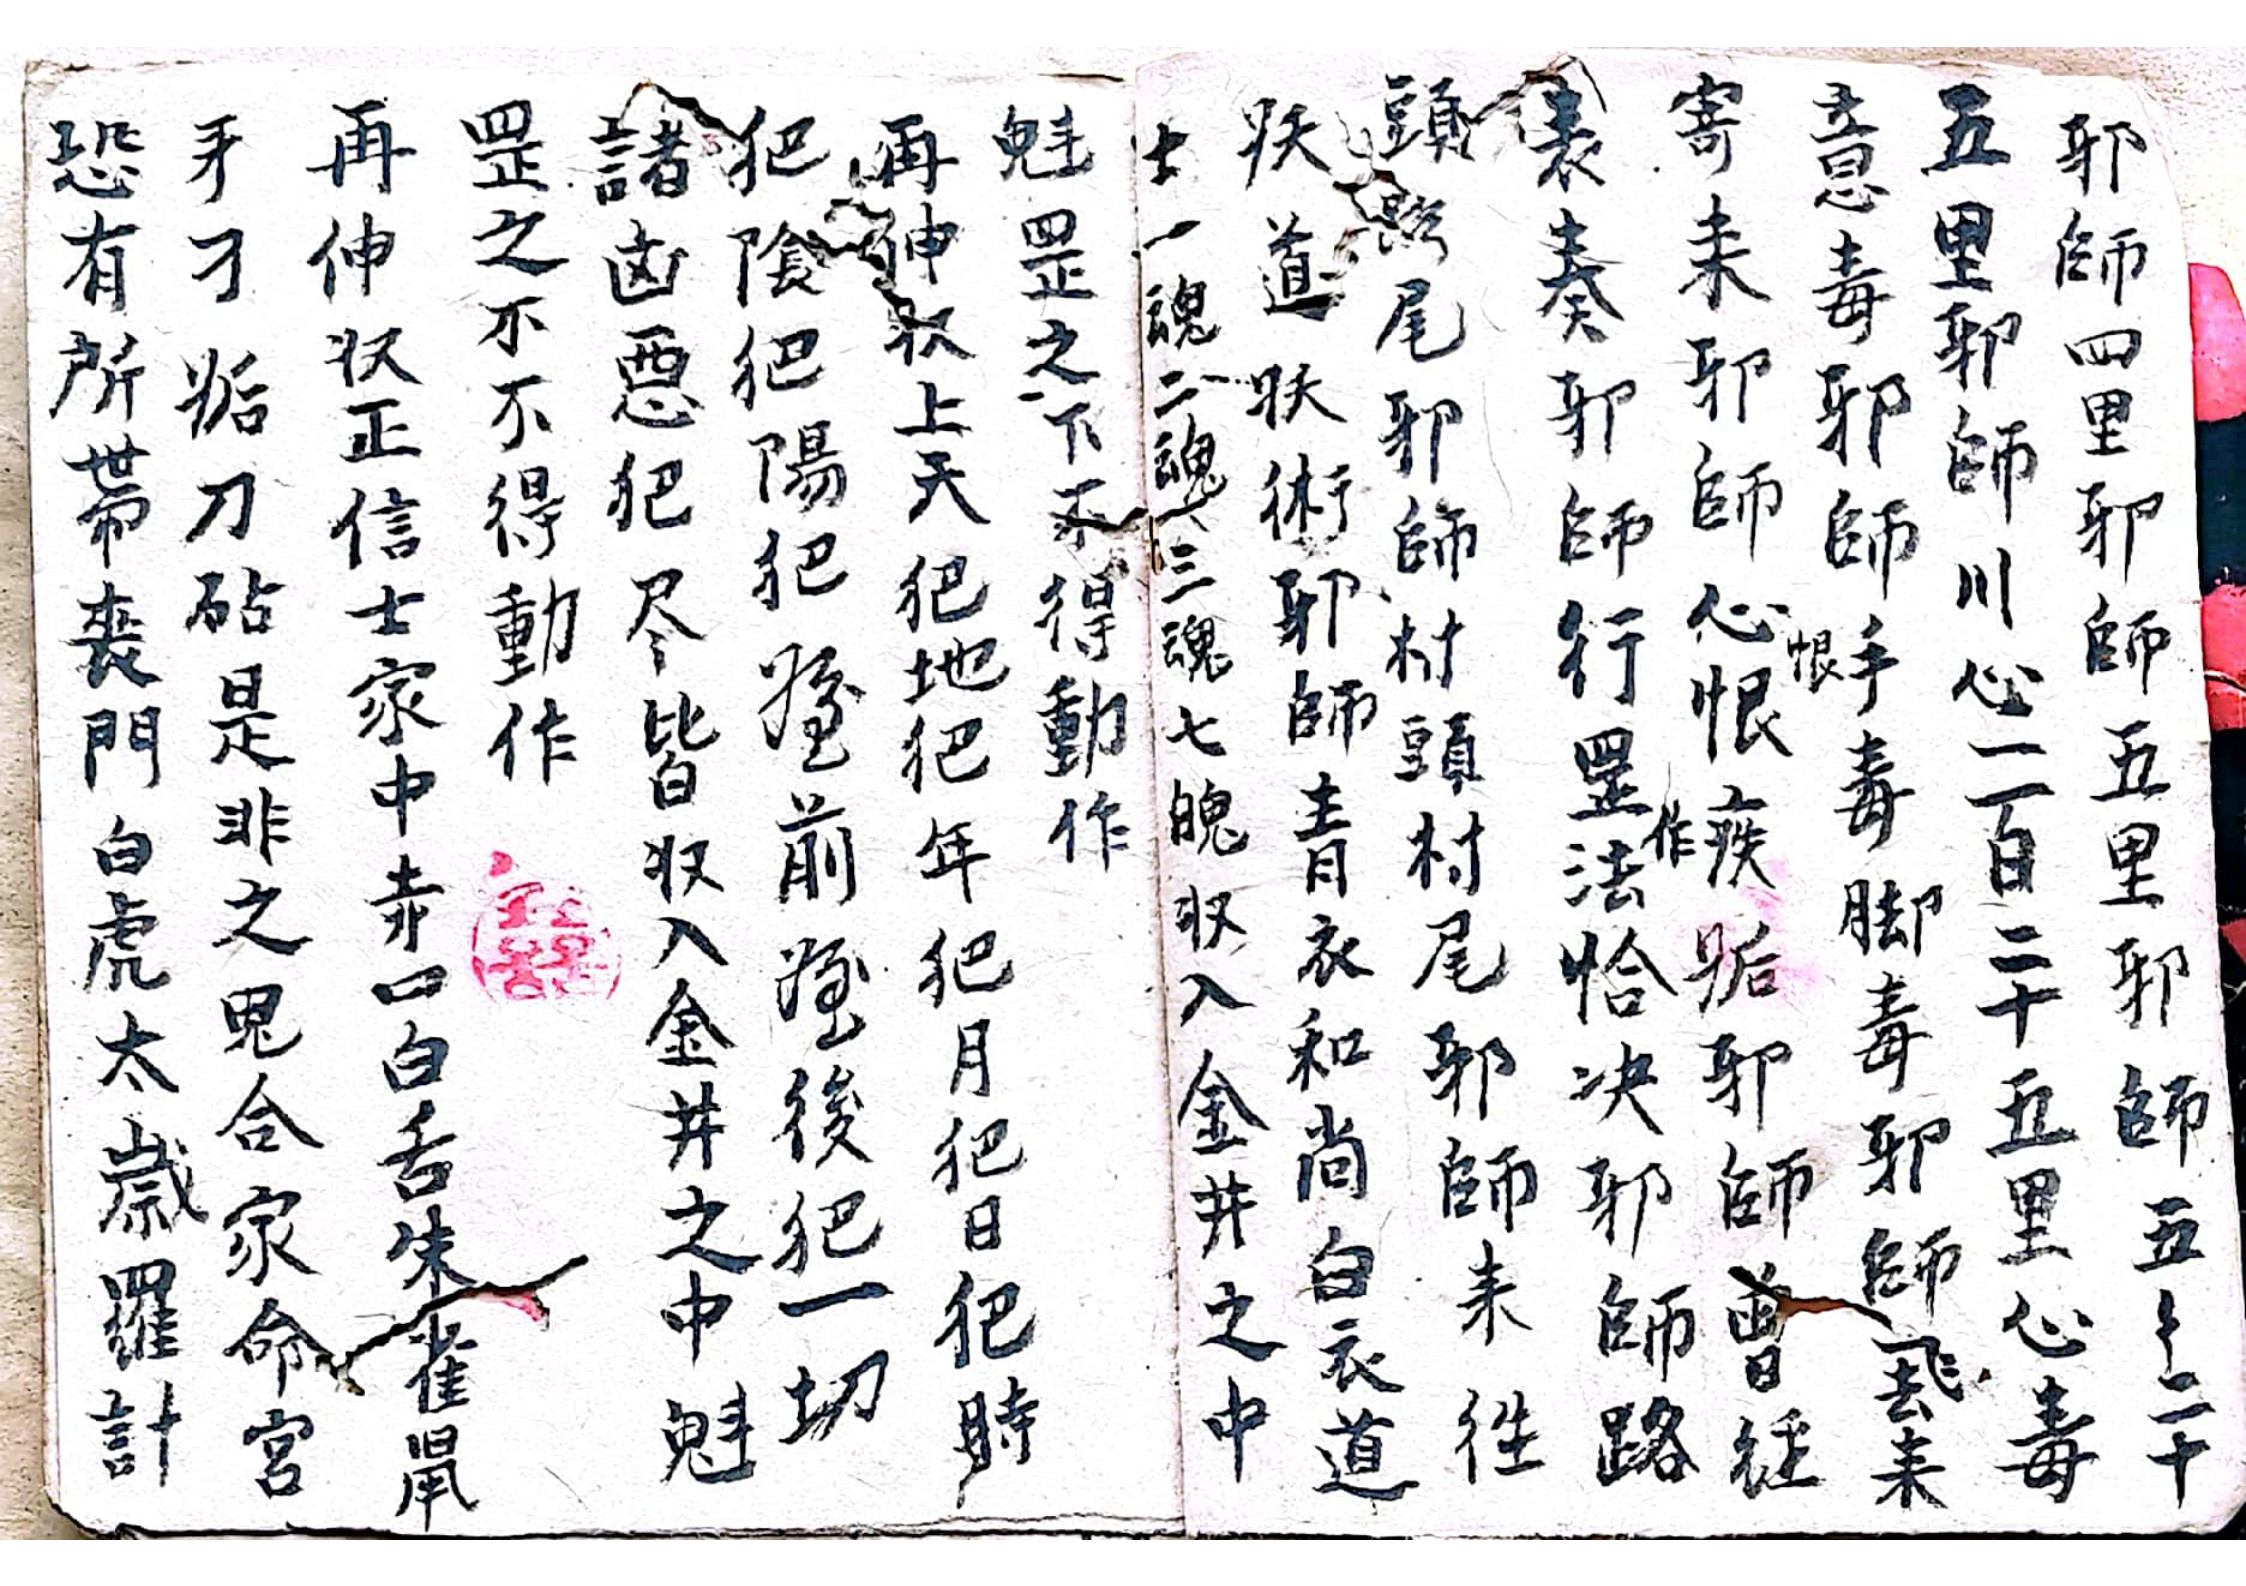 邪師四里邪師五里邪師五〻二十
五里邪師川心一百二十五里心毒
意毒邪師手毒脚毒邪師飛去来
恨
寄来邪師心恨疾垢邪師曾徑
作
表奏邪師行罡法恰决邪師路
頭路尾邪師村頭村尾邪師来徃
妖道妖術邪師青衣和尚白衣道
士一魂二魂三魂七魄收入金井之中
魁罡之下不得動作
再伸收上天犯地犯年犯月犯日犯時
犯陰犯陽犯前後犯一切
諸凶惡犯尽皆收入金井之中魁
罡之不不得動作
再伸收正信士家中赤口白舌朱雀
牙刁刀砧是非之鬼合家命宮
恐有所帶喪門白虎太歲羅計